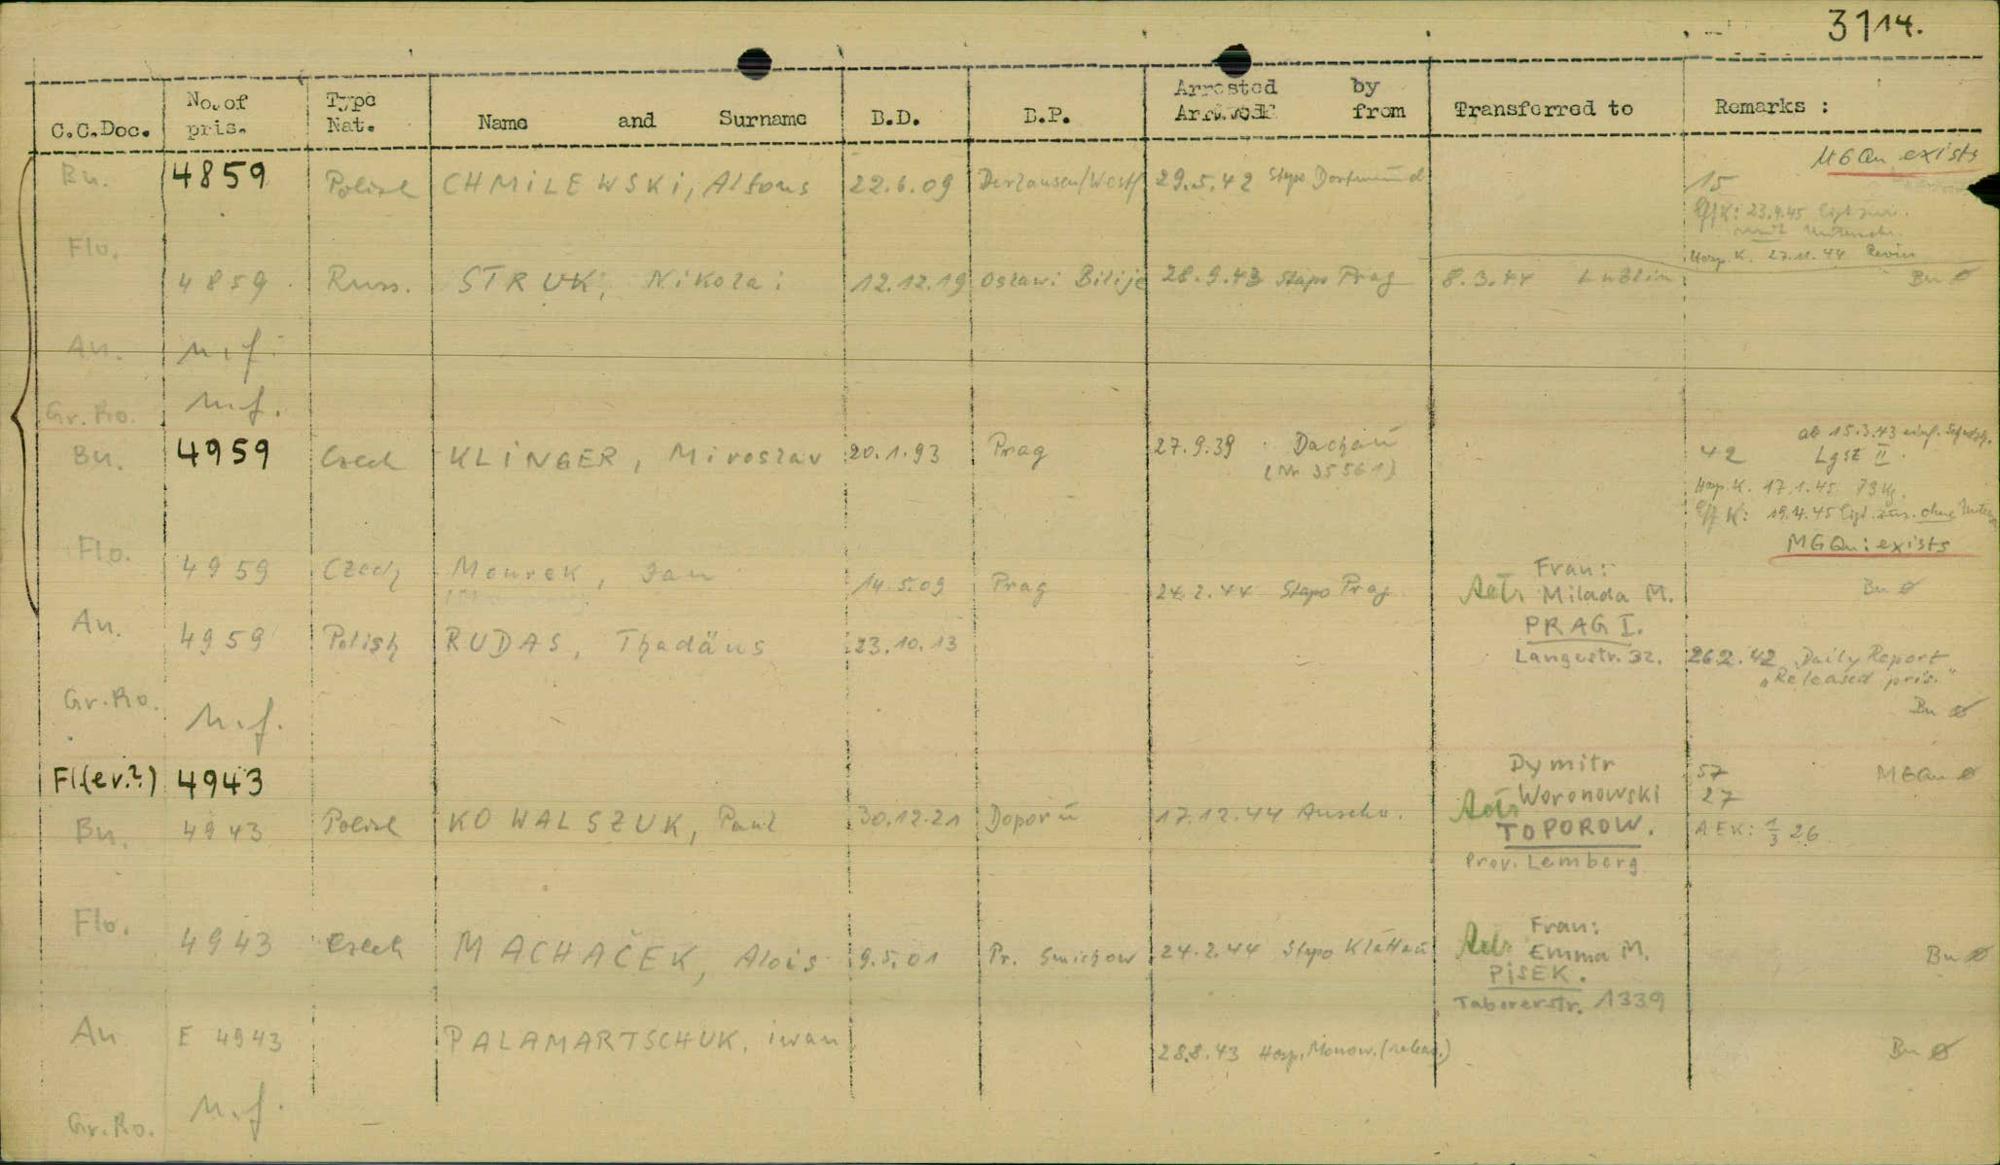 3114.
C.C.Doc. No. of pris. Type Nat. Name and Surname B.D. B.P. Arrested by from Transferred to Remarks :
MGQu exists
Bu. 4859 Polish CHMiLEWSKi, Alfons 22.6.09 29.5.42 Stapo Dortmund 15
Eff K: 23.4.45
Flo.
Hosp. K. 27.11.44 Revier
4859. Russ. STRUK, Nikolai 12.12.19 Oslawi Bilije 28.9.43 Stapo Prag 8.3.44 Lublin Bu ø
An. n.f.
Gr.Ro. n.f.
ab 15.3.43
Bu. 4959 Czech KLiNGER, Miroslav 20.1.93 Prag 27.9.39 Dachau 42 Lgst II.
(Nr 35561)
Hosp. K. 17.1.45 73 Kg.
Eff K: 19.4.45 ohne
MGQu: exists
Flo. 4959 Czech Mourek, Jan 14.5.09 Prag 24.2.44 Stapo Prag Frau: Bu ø
Milada M.
PRAG I.
Langestr. 32.
An. 4959 Polish RUDAS, Thadäus 23.10.13 26.2.42 Daily Report
"Released pris."
Gr.Ro. n.f. Bu ø
Fl(ev.?) 4943 Dymitr 57 MGQu ø
Woronowski 27
Bu. 4943 Polish KOWALSZUK, Paul 30.12.21 17.12.44 Auschw. TOPOROW. AEK: 1/3 26
Prov. Lemberg
Flo. 4943 Czech MACHAČEK, Alois 9.5.01 Pr. Smichow 24.2.44 Stapo Klattau Frau: Bu ø
Emma M.
PiSEK.
Taborerstr. 1339
An E 4943 PALAMARTSCHUK, iwan 28.8.43 Hosp. Monow. (releas.) Bu ø
Gr.Ro. n.f.